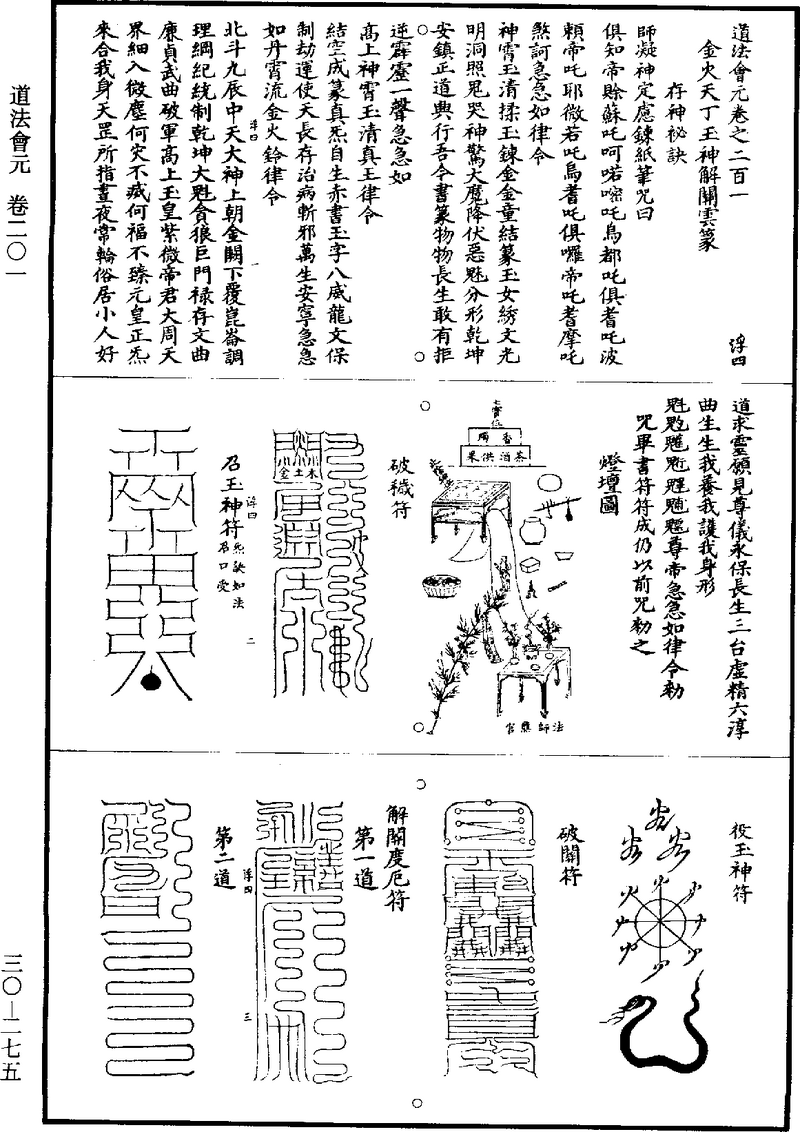 道法會元卷之二百一
浮四
金火天丁玉神解關雲篆
存神祕訣
師凝神定慮鍊紙筆咒曰
俱知帝賒蘇吒呵喏㗭吒烏都吒俱耆吒波
賴帝吒耶微若吒烏耆吒俱囉帝吒耆摩吒
煞訶急急如律令
神霄玉清揉玉鍊金金童結篆玉女綉文光
明洞照鬼哭神驚大魔降伏惡魅分形乾坤
安鎮正道興行吾今書篆物物長生敢有拒
逆霹靂一聲急急如
高上神霄玉清真王律令
結空成篆真炁自生赤書玉字八威龍文保
制劫運使天長存治病斬邪萬生安寧急急
如丹霄流金火鈴律令
浮四
一
北斗九辰中天大神上朝金闕下覆崑崙調
理綱紀統制乾坤大魁貪狼巨門祿存文曲
廉貞武曲破軍高上玉皇紫微帝君大周天
界細入微塵何灾不滅何福不臻元皇正炁
來合我身天罡所指晝夜常輪俗居小人好
道求靈願見尊儀永保長生三台虛精六淳
曲生生我養我護我身形
尊帝急急如律令勅
咒畢書符符成仍以前咒勅之
燈壇圖
七寶位
香燭
茶酒供果
法師應官
破穢符
木土金
召玉神符
炁訣如法
召口受
浮四
二
役玉神符
破關符
解關度厄符
第一道
浮四
三
第二道
道法會元 卷二〇一
三〇—二七五